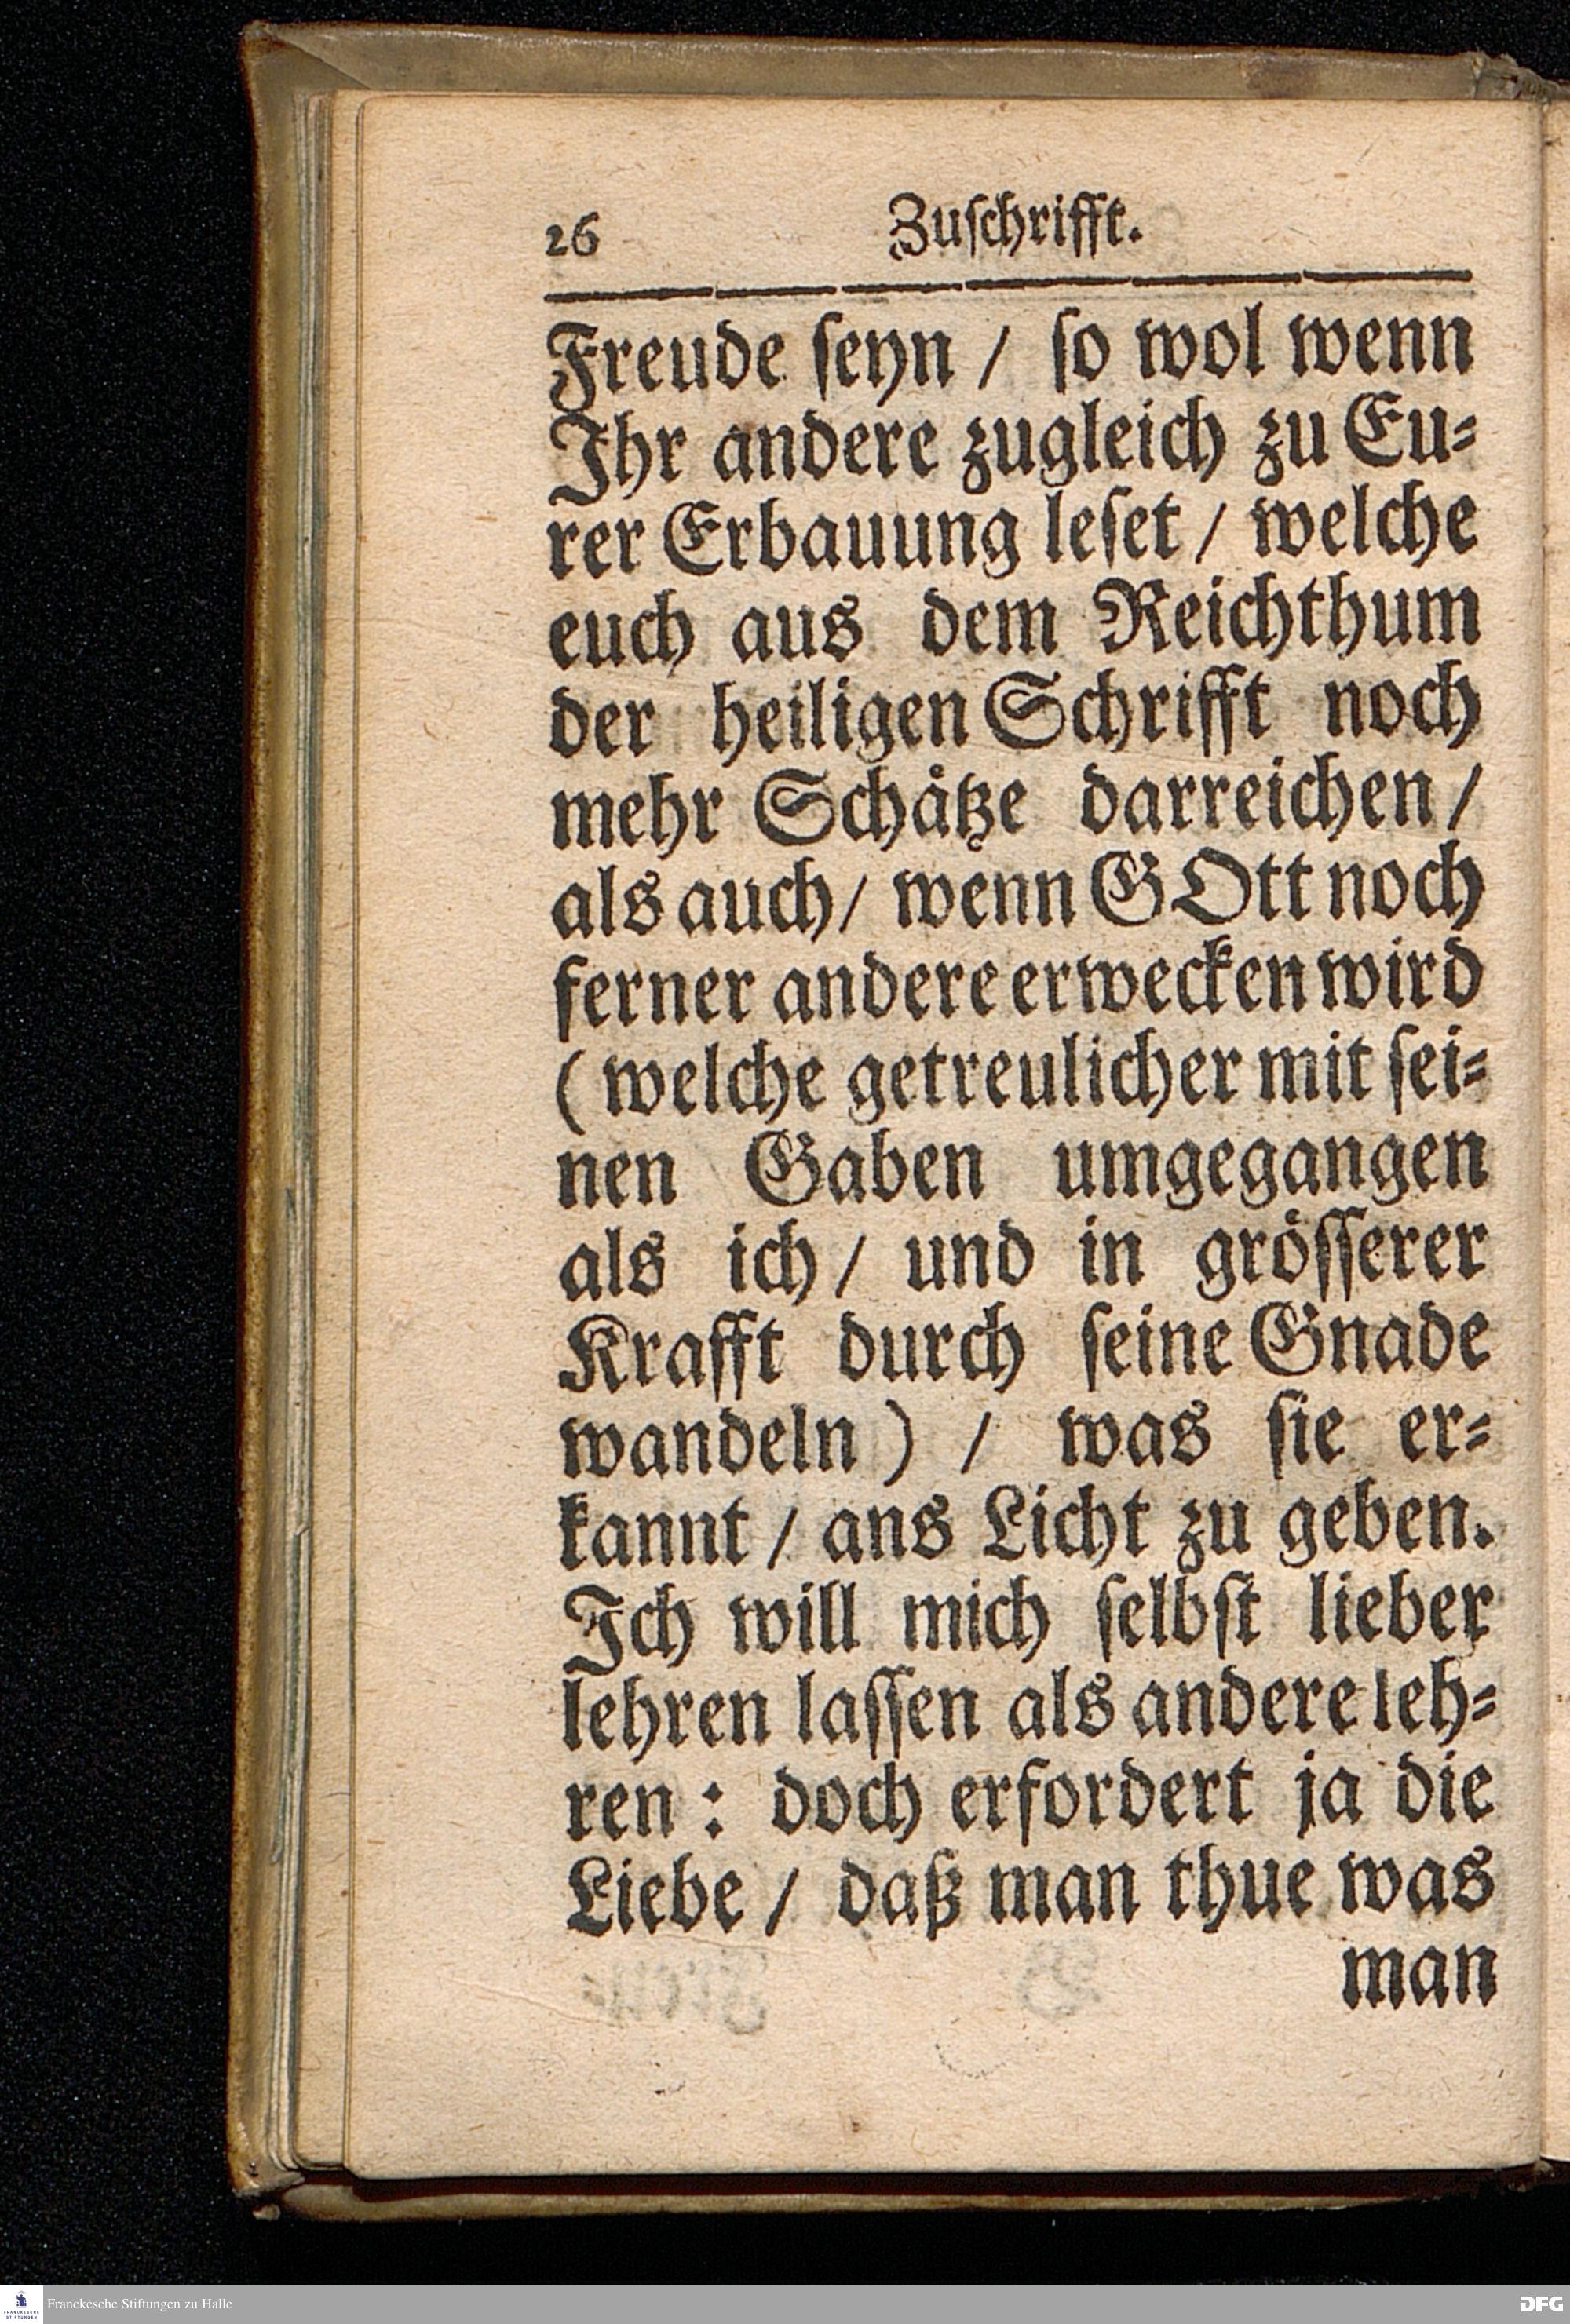 26 Zuſchrifft.
Freude ſeyn / ſo wol wenn
Ihr andere zugleich zu Eu⸗
rer Erbauung leſet / welche
euch aus dem Reichthum
der heiligen Schrifft noch
mehr Schaͤtze darreichen /
als auch / wenn GOtt noch
ferner andere erwecken wird
( welche getreulicher mit ſei⸗
nen Gaben umgegangen
als ich / und in groͤſſerer
Krafft durch ſeine Gnade
wandeln ) / was ſie er⸗
kannt / ans Licht zu geben.
Ich will mich ſelbſt lieber
lehren laſſen als andere leh⸗
ren : doch erfordert ja die
Liebe / daß man thue was
man
Franckesche Stiftungen zu Halle
DFG